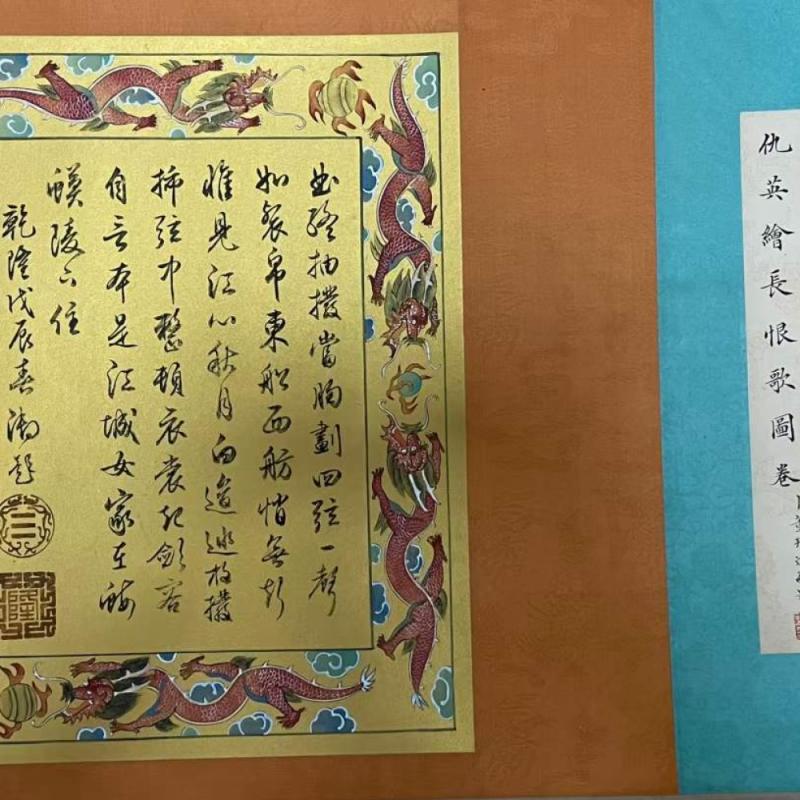 仇英繪長恨歌圖卷
曲終抽撥當胸劃四弦一聲
如裂帛東船西舫悄無言
惟見江心秋月白放撥
插弦中整頓衣裳起斂容
自言本是江城女家在蝦
蟆陵下住
乾隆戊辰春御題